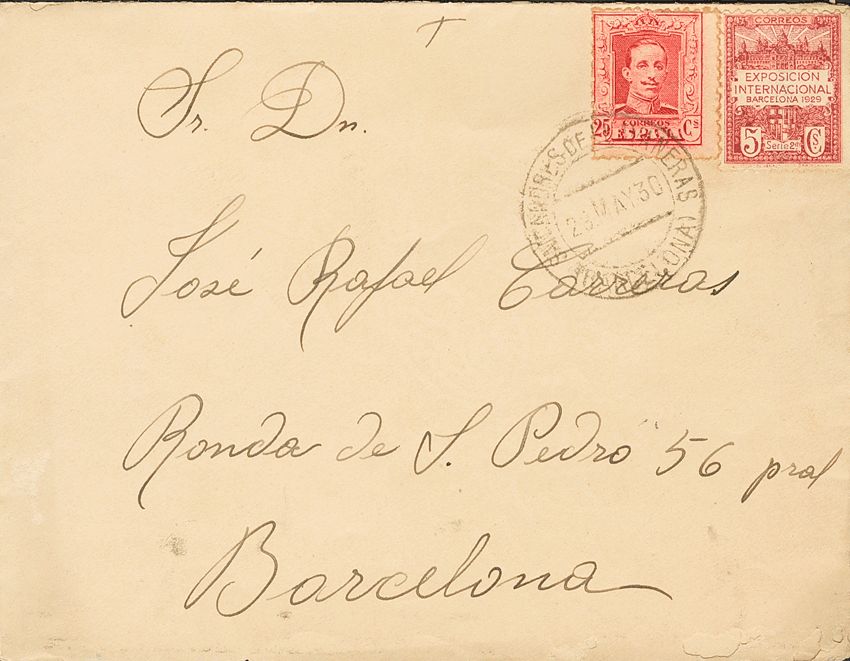 Sr. Dn.
José Rafael Carreras
Ronda de S. Pedro 56 pral
Barcelona
25 CORREOS Cs
ESPAÑA
CORREOS
EXPOSICION
INTERNACIONAL
BARCELONA 1929
5 Serie 2ª Cs
DE
MAY 30